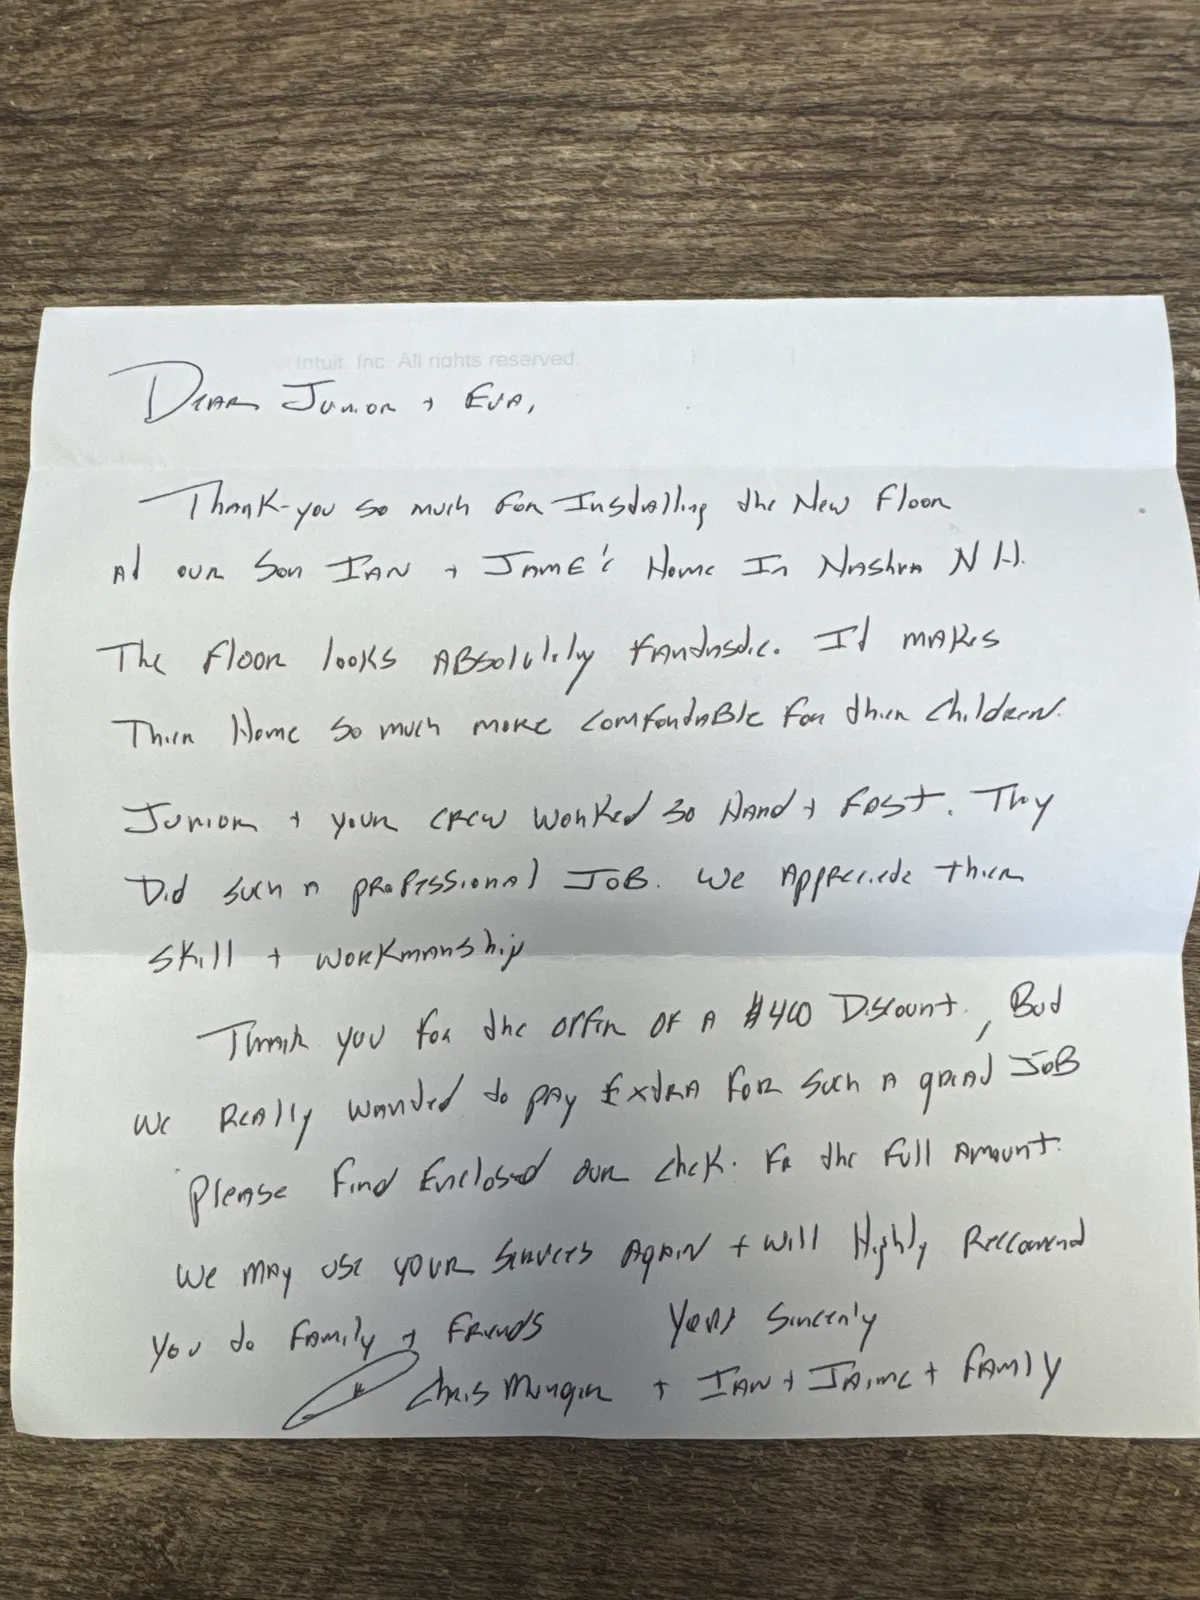 Intuit, Inc. All rights reserved.
Dear Junior + Eva,
Thank-you so much for Installing the New Floor
At our Son IAN + JAME's Home In Nashua N.H.
The Floor looks Absolutely Fantastic. It makes
Their Home so much more comfortable for their children.
Junior + your crew worked so Hard + Fast. They
Did such a professional JOB. We Appreciate their
skill + workmanship
Thank you for the offer of a $400 Discount, But
we Really wanted to pay Extra for such a great JOB
Please Find Enclosed our check. For the full Amount.
We may use your services Again + will Highly Reccomend
You to Family + Friends Yours Sincerely
Chris + IAN + JAime + Family